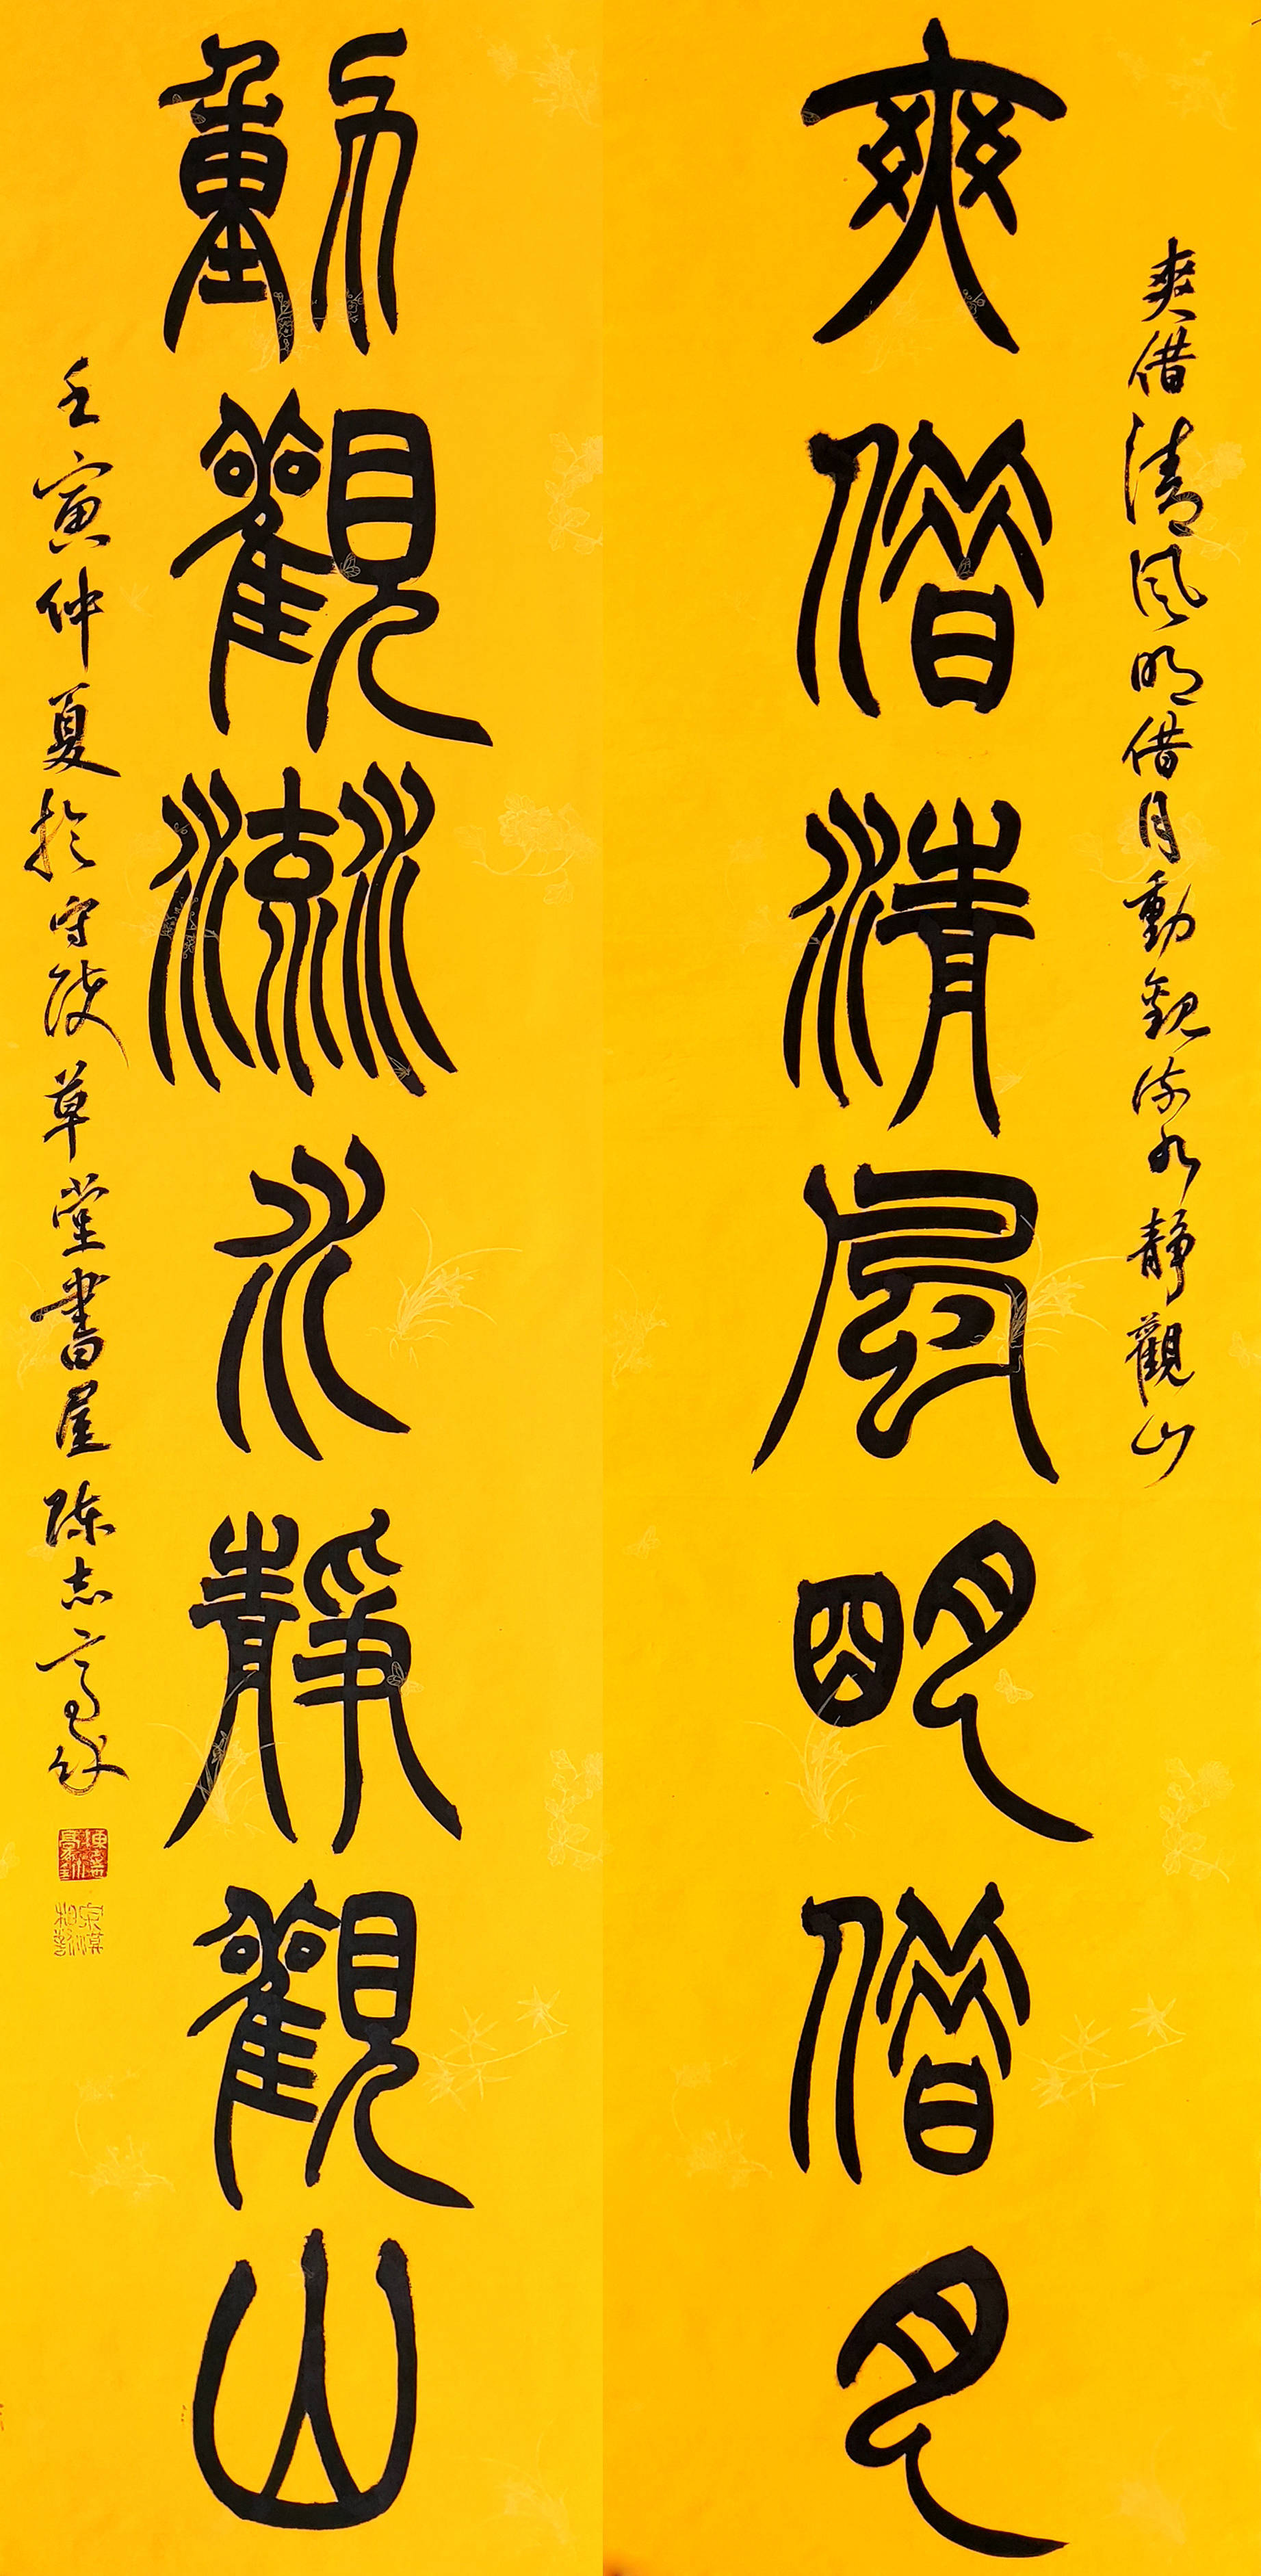 爽借清風明借月動觀流水靜觀山
爽借清風明借月
動觀流水靜觀山
壬寅仲夏於守陵草堂書屋陈志高